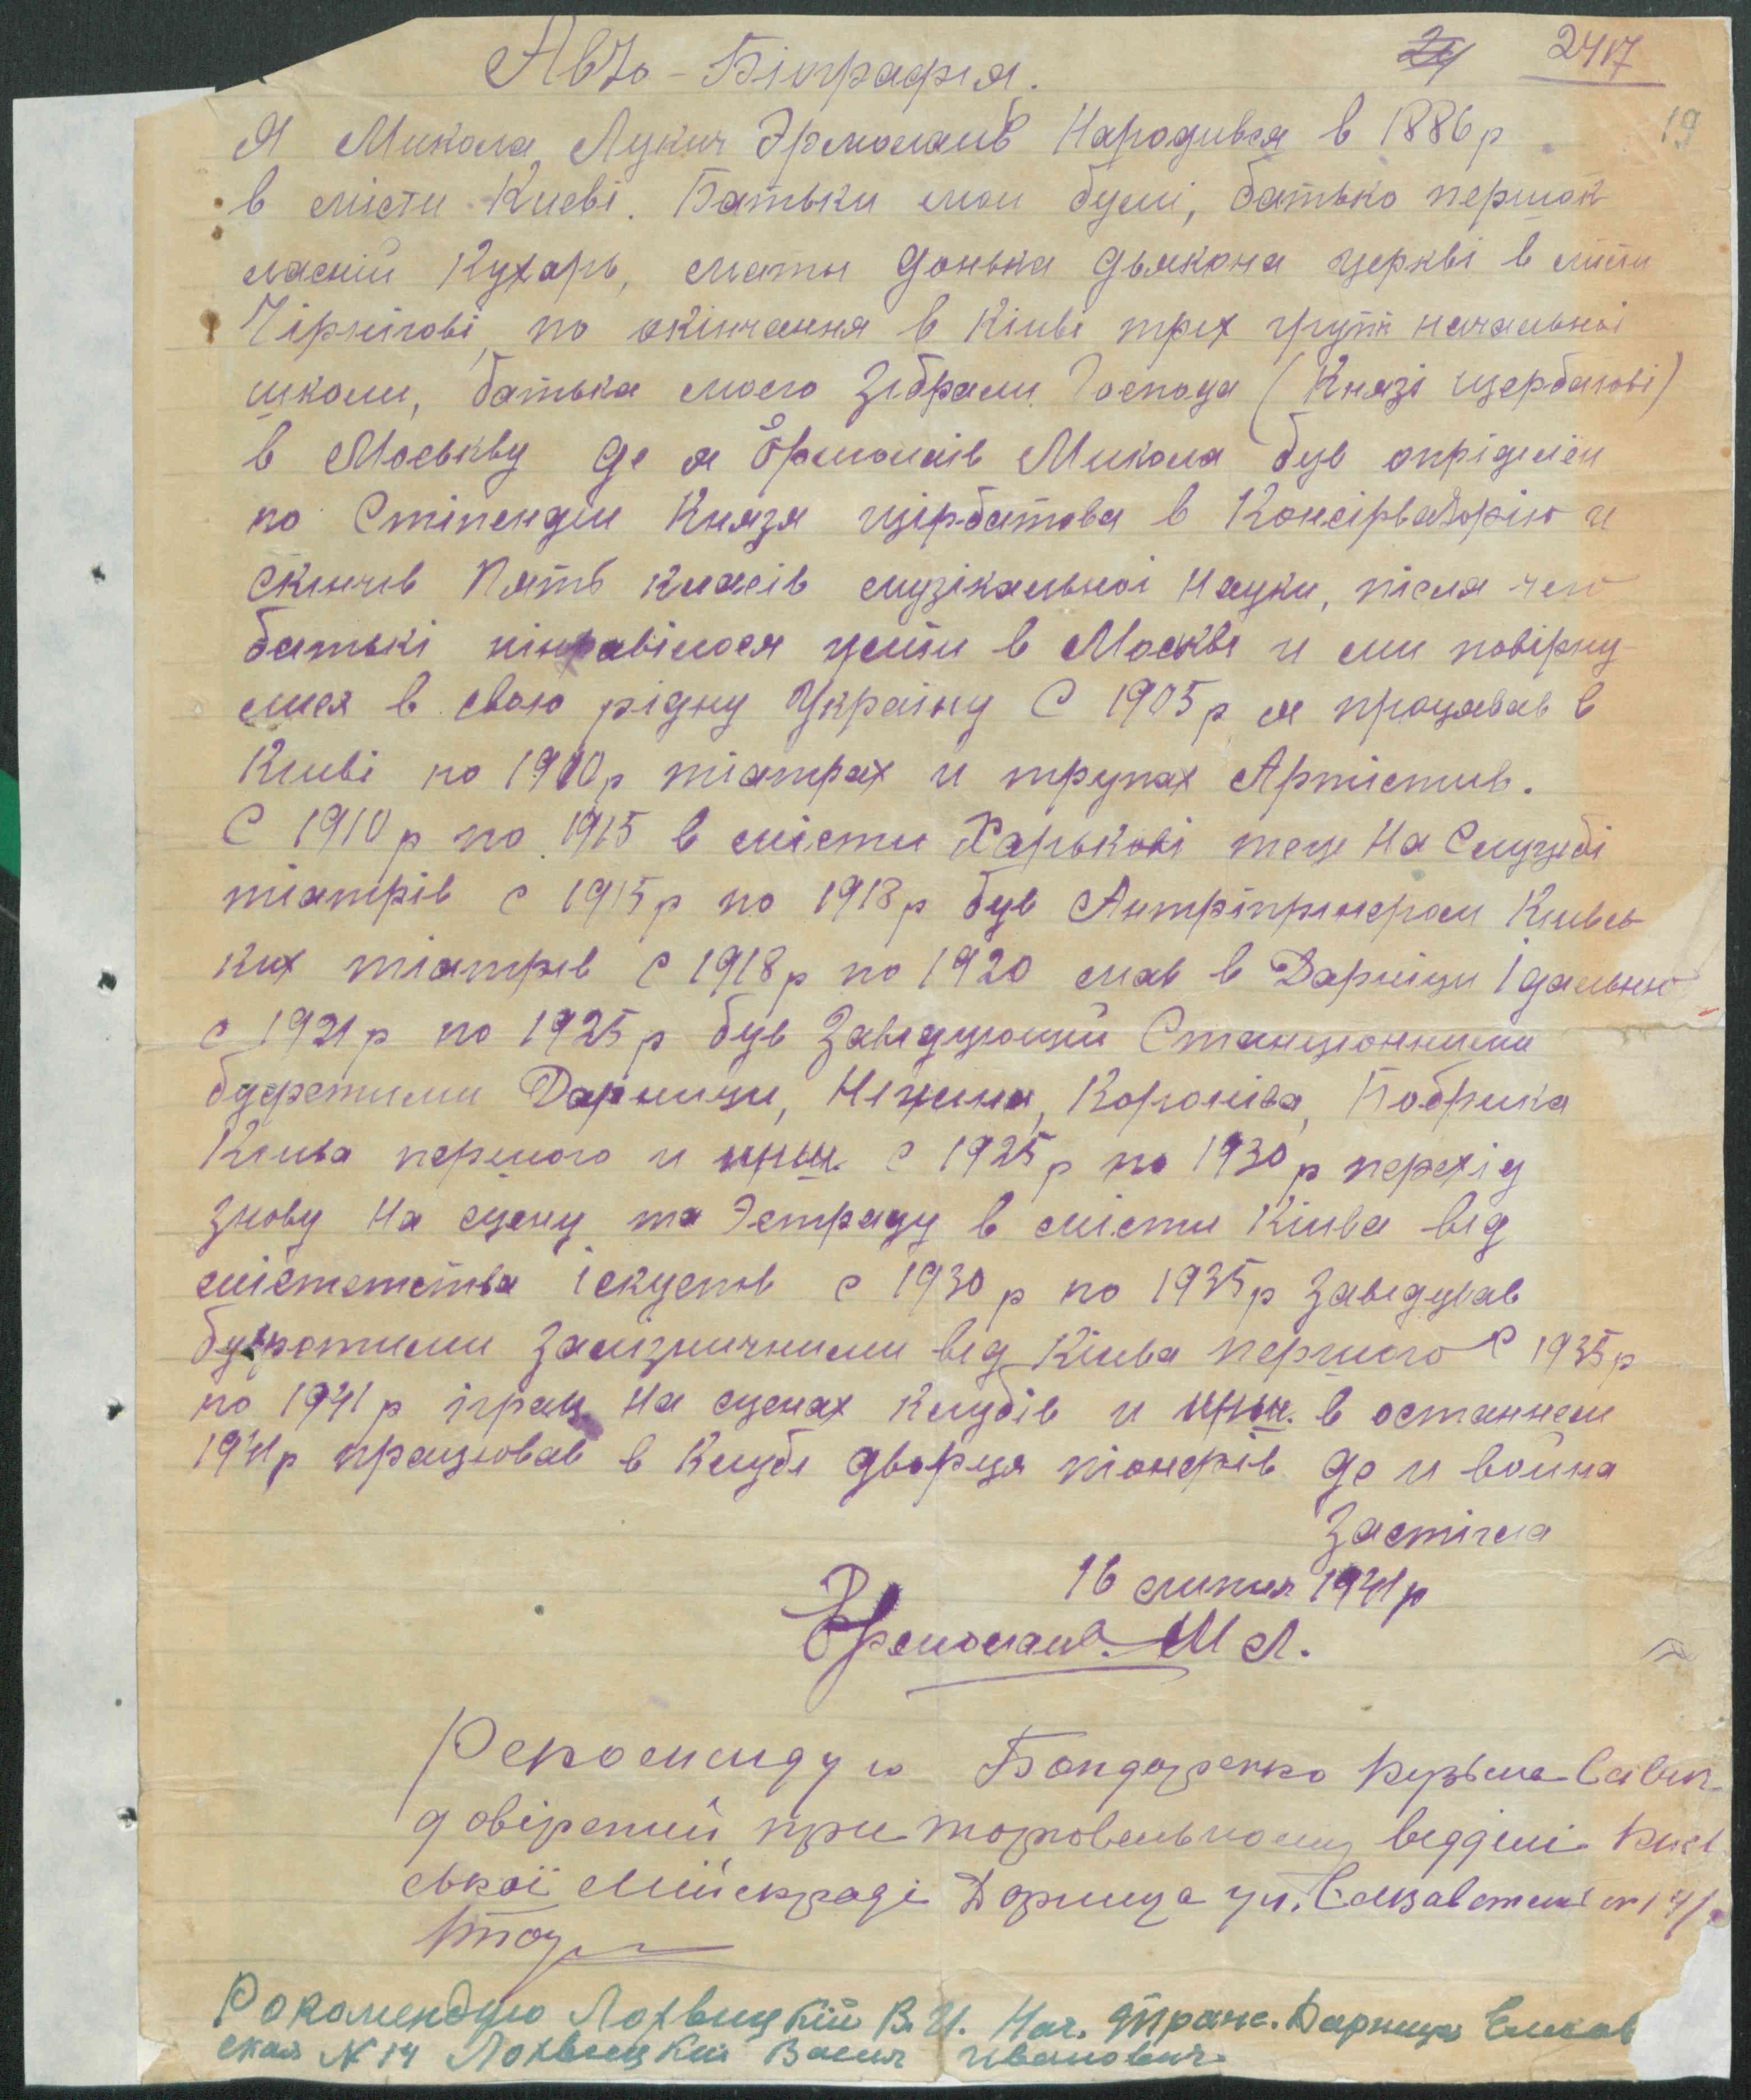 Авто-Біографія.
24 2417
19
Я Микола Лукич Эрмолаів Народився в 1886 р
в місти Киеві. Батьки мои були, батько першок
ласній Кухарь, мати донька дьякона церкві в міти
Чірнігові, по окінчання в Кіиві трех групп начальноі
школи, батька моего зібрали Господа (Князі щербатові)
в Моськву де я Ермолаів Микола був опріділен
по Стіпендіи Князя щірбатова в Консірваторію и
скінчив Пять класів музікальноі Науки, після чего
батькі нінравілося жити в Москві и ми повірну-
лися в свою рідну Украіну С 1905 р я працював в
Киіві по 1910 р тіатрах и трупах Артістив.
С 1910 р по 1915 в місти Харькові теж На Службі
тіатрів с 1915 р по 1918 р був Антріпрінером Киівсь
ких тіатрів с 1918 р по 1920 мав в Дарници Ідальню
с 1921 р по 1925 р був Завідующий Станционними
буфетими Дарници, Ніжина, Бобрика
Киіва первого и инш. с 1925 р по 1930 р перехід
знову На сцену та Эстраду в місти Кіива від
містетства іскуств с 1930 р по 1935 р Завідував
буфетими Залізничними від Кіива першого с 1935 р
по 1941 р іграв На сценах Клубів и инш. в останнем
1941 р працював в Клубі дворця піонерів де и война
Застігла
16 1941 р
Ермолаів. М Л.
Рекоминдую Бондаренко Кузьма Савич
довірений при торговельному відділі Києв
ської Міськраді Дарница ул.
Рокомендую Лохвицкій В. И. Нач. Дарница
ская № 14 Лохвицкий Васил Иванович